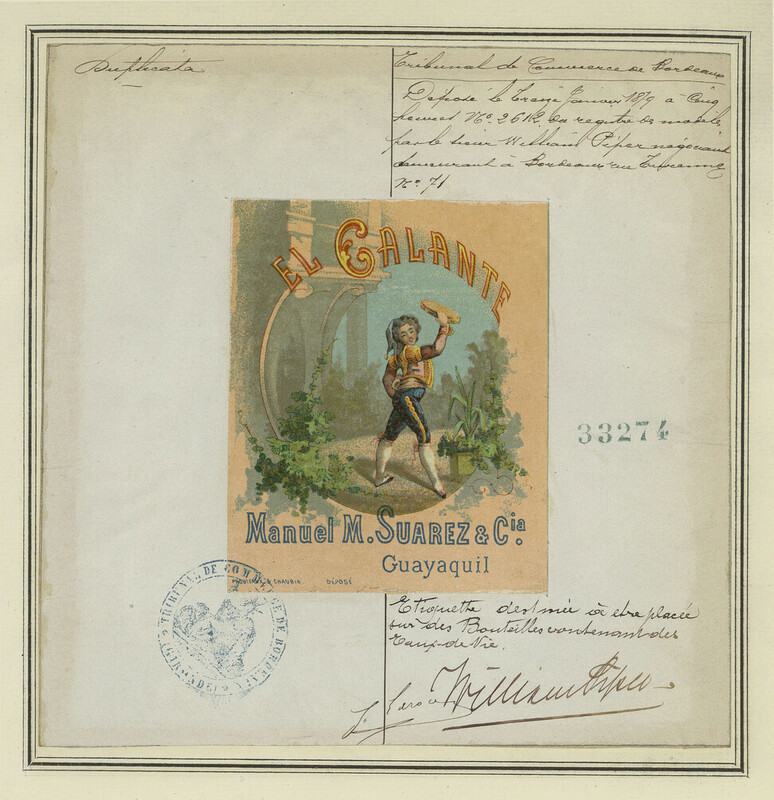 Duplicata
Tribunal de Commerce de Bordeaux
Déposé le Treize Janvier 1879 à Cinq
heures No. 2612 du registre de modèle
par le sieur William Piper négociant
demeurant à Bordeaux rue Turenne
No. 71
EL GALANTE
33274
Manuel M. SUAREZ & Cia.
Guayaquil
CHAUBIN. DÉPOSÉ
TRIBUNAL DE COMMERCE DE BORDEAUX
(GIRONDE)
Etiquette destinée à être placée
sur des Bouteilles contenant des
Eaux-de-Vie.
William Piper